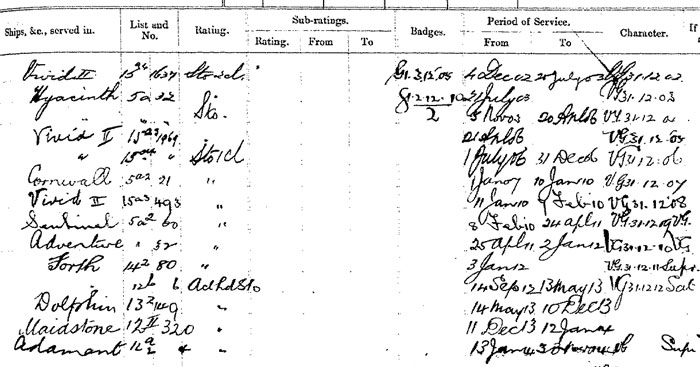 Ships, &c., served in. List and No. Rating. Sub-ratings. Badges. Period of Service. Character. If
Rating. From To From To
Vivid II 15a4 1637 Sto2cl. G1.3.12.05 4 Dec 02 20 July 03 VG 31.12.02
Hyacinth 5a 32 21 July 03 VG 31.12.03
Sto. 5 Nov 03 20 Apl 06 VG 31.12.04
Vivid II 15a3 1969 21 Apl 06 VG 31.12.05
" " Sto1cl 1 July 06 31 Dec 06 VG 31.12.06
Cornwall 5a2 21 " 1 Jan 07 10 Jan 10 VG 31.12.07
Vivid II 15a3 493 " 11 Jan 10 9 Feb 10 VG 31.12.08
Sentinel 5a2 60 " 8 Feb 10 24 Apl 11 VG 31.12.09 VG.
Adventure " 32 " 25 Apl 11 2 Jan 12 VG 31.12.10 VG
Forth 14a 80 " 3 Jan 12 VG 31.12.11 Supr.
12b 6 ActLdSto 14 Sep 12 13 May 13 VG 31.12.12 Sat
Dolphin 13a 149 " 14 May 13 10 Dec 13
Maidstone 12 II 320 " 11 Dec 13 12 Jan 14
Adamant " 13 Jan 14 Supr